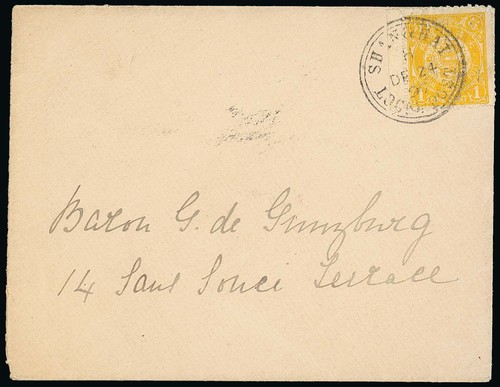 SHANGHAI
DE 24
1 1
Baron G. de Gunzburg
14 Sans Souci Terrace